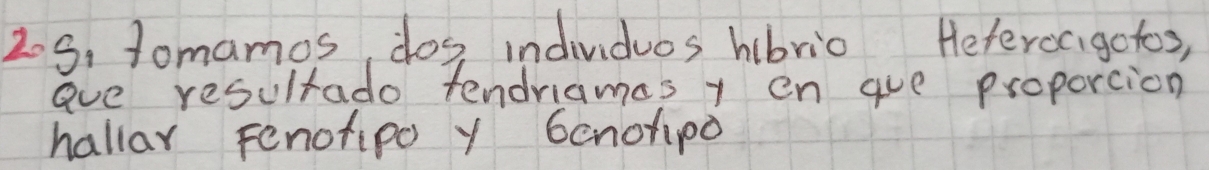 2. Si tomamos, dos, individuos hibrio Heterocigotos,
Que resultado tendriamos y en que proporcion
hallar Fenotipo y Genotipo